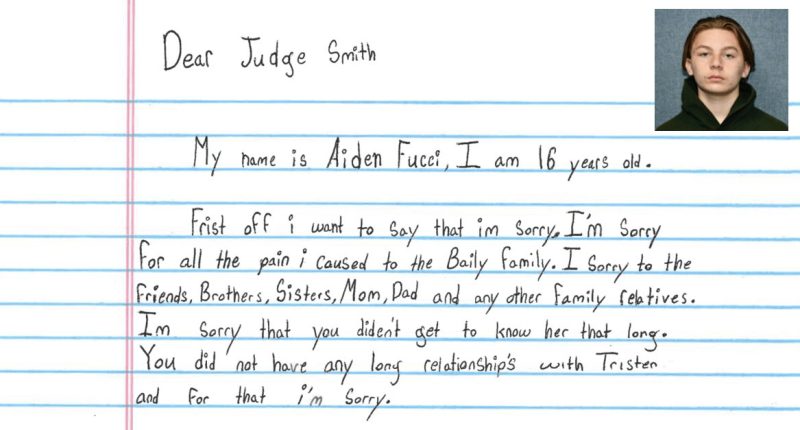 Dear Judge Smith
My name is Aiden Fucci, I am 16 years old.
Frist off i want to say that im sorry. I'm Sorry
for all the pain i caused to the Baily family. I sorry to the
friends, Brothers, Sisters, Mom, Dad and any other family relatives.
Im sorry that you diden't get to know her that long.
You did not have any long relationship's with Tristen
and for that i'm sorry.